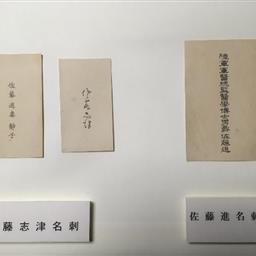 佐藤進妻 静子
佐藤志津
陸軍軍醫總監醫學博士男爵佐藤進
藤志津名刺
佐藤進名刺